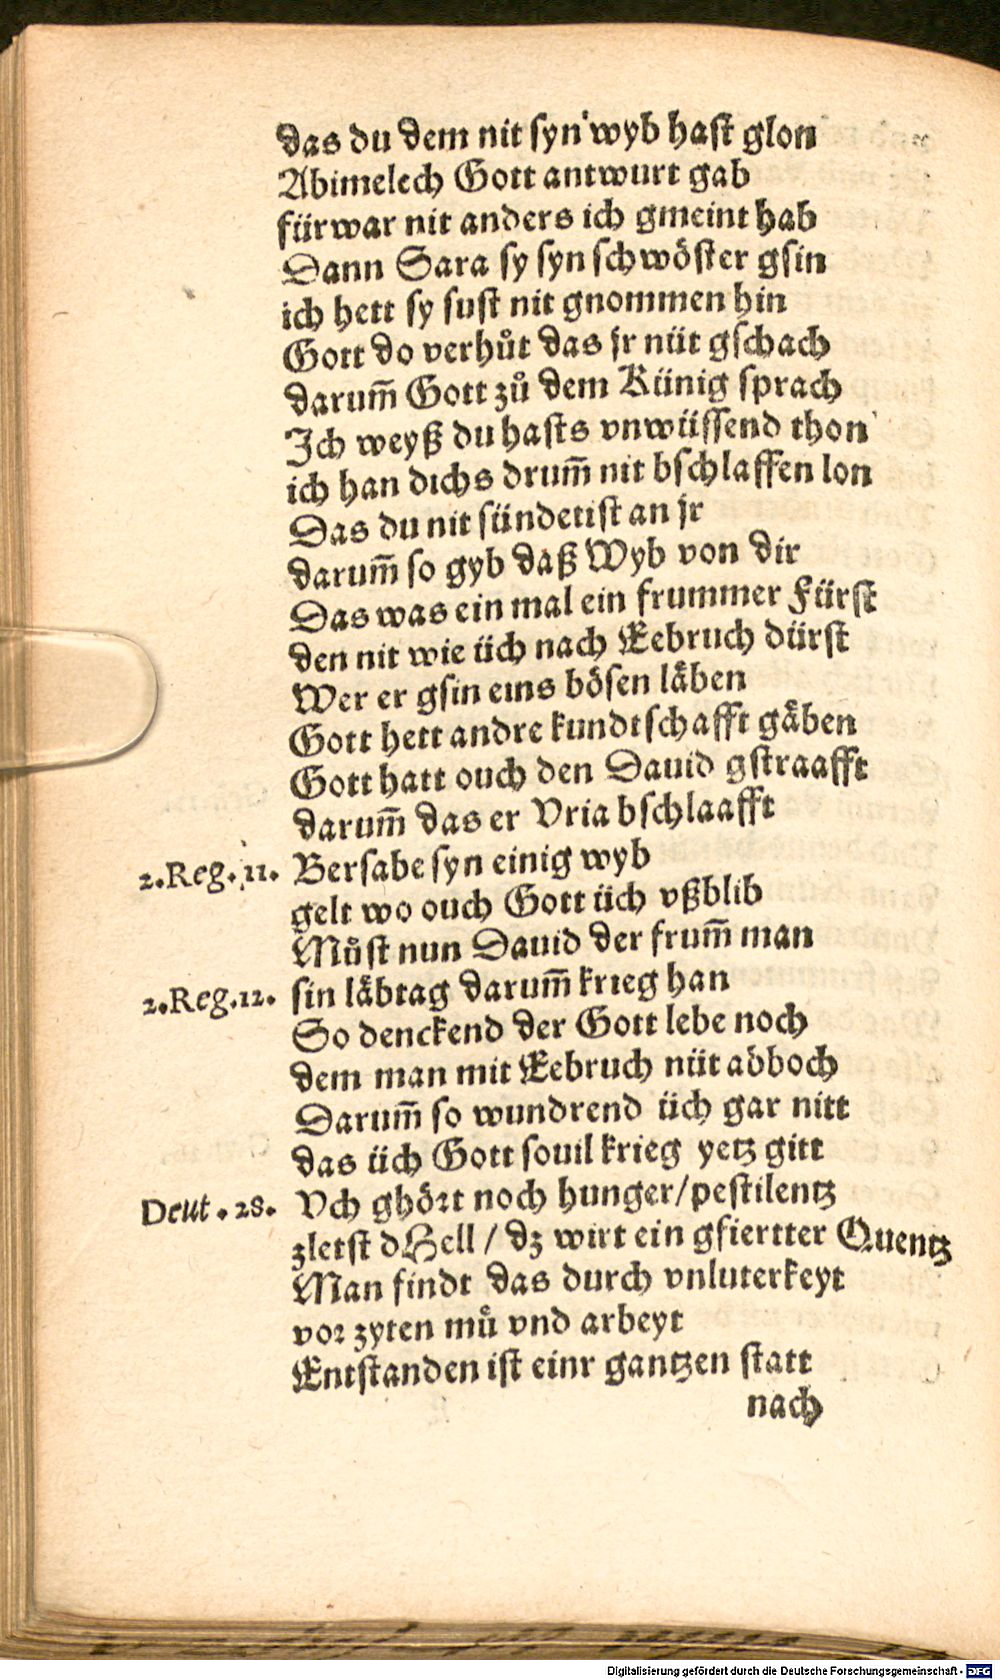 das du dem nit syn wyb hast glon
Abimelech Gott antwurt gab
fürwar nit anders ich gmeint hab
Dann Sara sy syn schwöster gsin
ich hett sy sust nit gnommen hin
Gott do verhůt das jr nüt gschach
darum̄ Gott zů dem Künig sprach
Ich weyß du hasts vnwüssend thon
ich han dichs drum̄ nit bschlaffen lon
Das du nit sündetist an jr
darum̄ so gyb daß Wyb von dir
Das was ein mal ein frummer Fürst
den nit wie üch nach Eebruch dürst
Wer er gsin eins bösen läben
Gott hett andre kundtschafft gäben
Gott hatt ouch den Dauid gstraafft
darum̄ das er Vria bschlaafft
2.Reg.11. Bersabe syn einig wyb
gelt wo ouch Gott üch vßblib
Můst nun Dauid der frum̄ man
2.Reg.12. sin läbtag darum̄ krieg han
So denckend der Gott lebe noch
dem man mit Eebruch nüt abboch
Darum̄ so wundrend üch gar nitt
das üch Gott souil krieg yetz gitt
Deut.28. Vch ghört noch hunger/pestilentz
zletst dHell / dz wirt ein gfiertter Quentz
Man findt das durch vnluterkeyt
vor zyten mů vnd arbeyt
Entstanden ist einr gantzen statt
nach
Digitalisierung gefördert durch die Deutsche Forschungsgemeinschaft - DFG